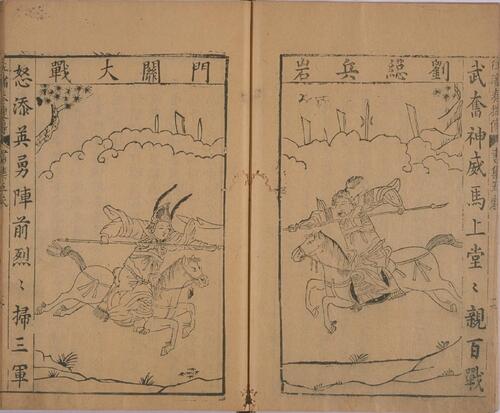 武奮神威馬上堂〻親百戰
劉總兵岩
門關大戰
怒添英勇陣前烈〻掃三軍